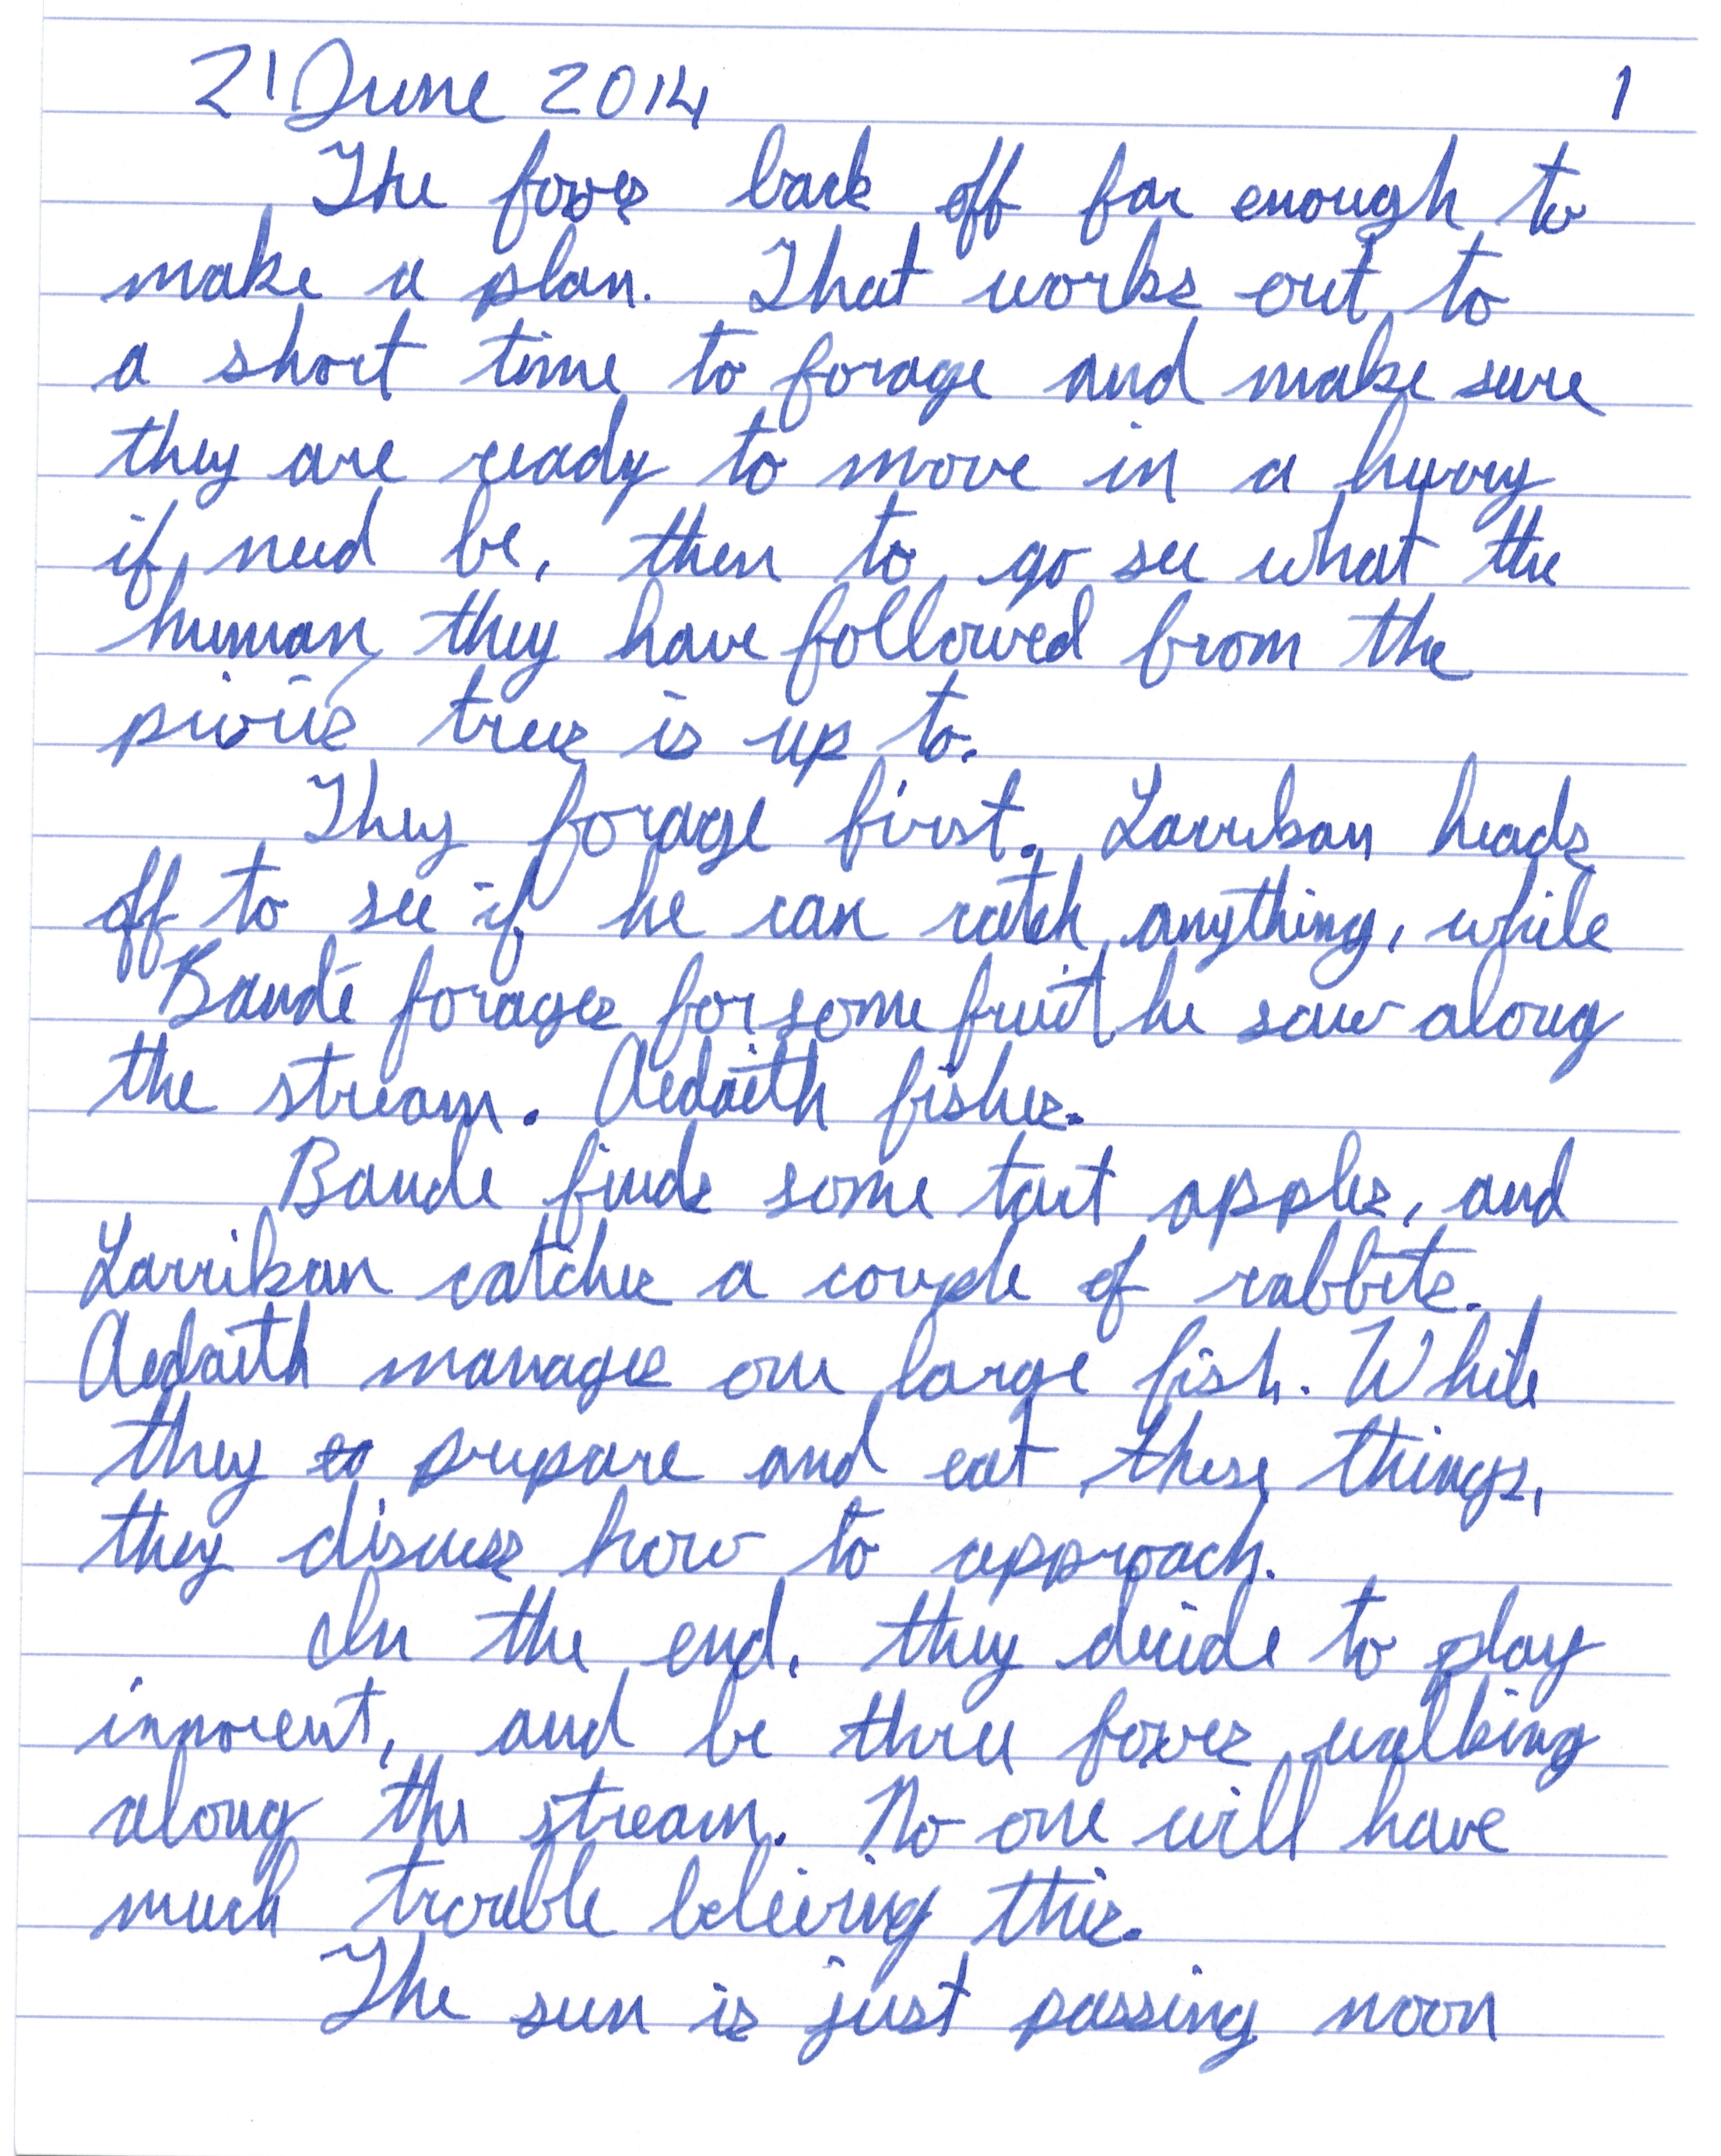 21 June 2014 1
The foxes back off far enough to
make a plan. That works out to
a short time to forage and make sure
they are ready to move in a hurry
if need be, then to go see what the
human they have followed from the
trees is up to.
They forage first. Larrikan heads
off to see if he can catch anything, while
Baudé forages for some fruit he saw along
the stream. Aedaith fishes.
Baudé finds some tart apples, and
Larrikan catches a couple of rabbits.
Aedaith manages one large fish. While
they prepare and eat these things,
they discuss how to approach.
In the end, they decide to play
innocent, and be three foxes walking
along the stream. No one will have
much trouble believing this.
The sun is just passing noon